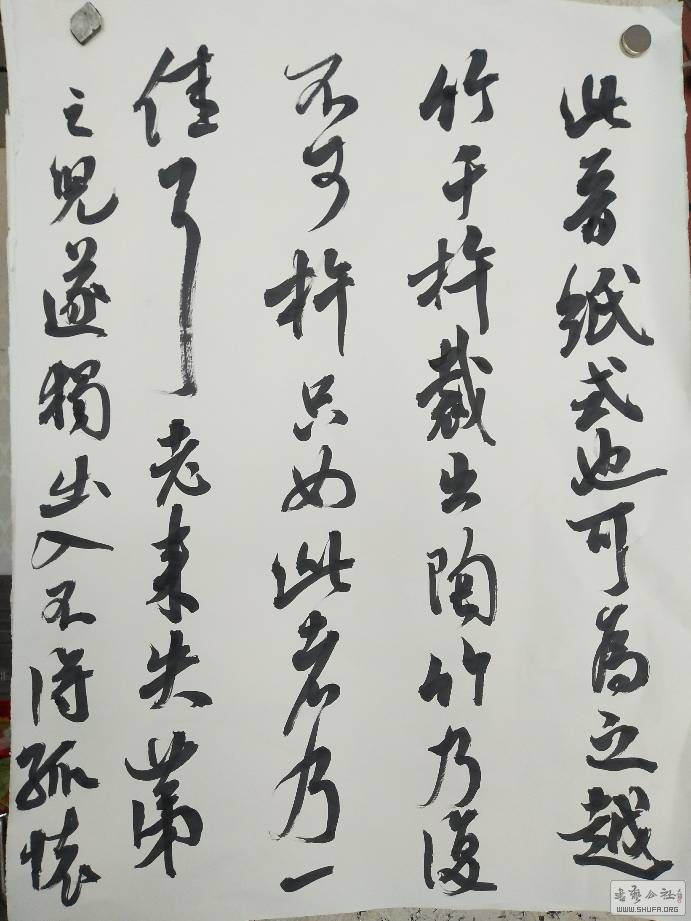 此晉紙式也可為之越
竹千杵裁出陶竹乃復
不可杵只如此者乃一
佳耳老来失第
之兒遂獨出入不得孤懷
書藝公社
WWW.SHUFA.ORG